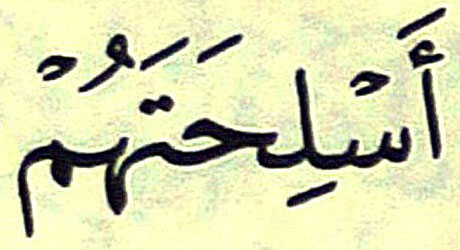 أَسْلِحَتَهُمْ